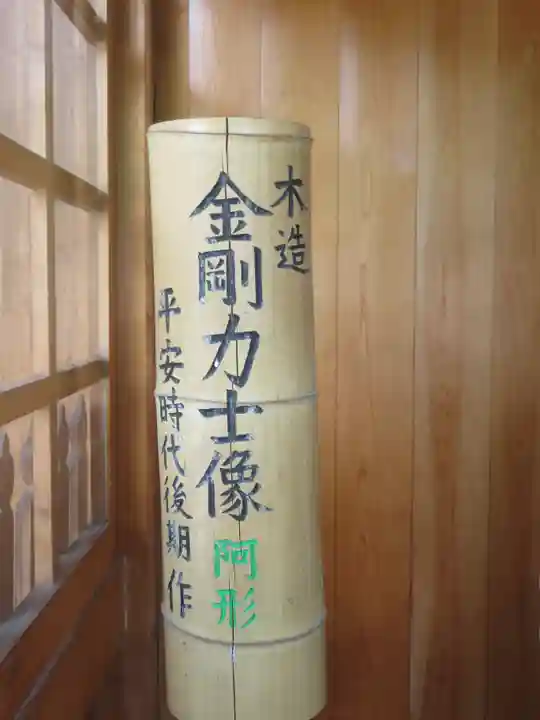 木造
金剛力士像 阿形
平安時代後期作